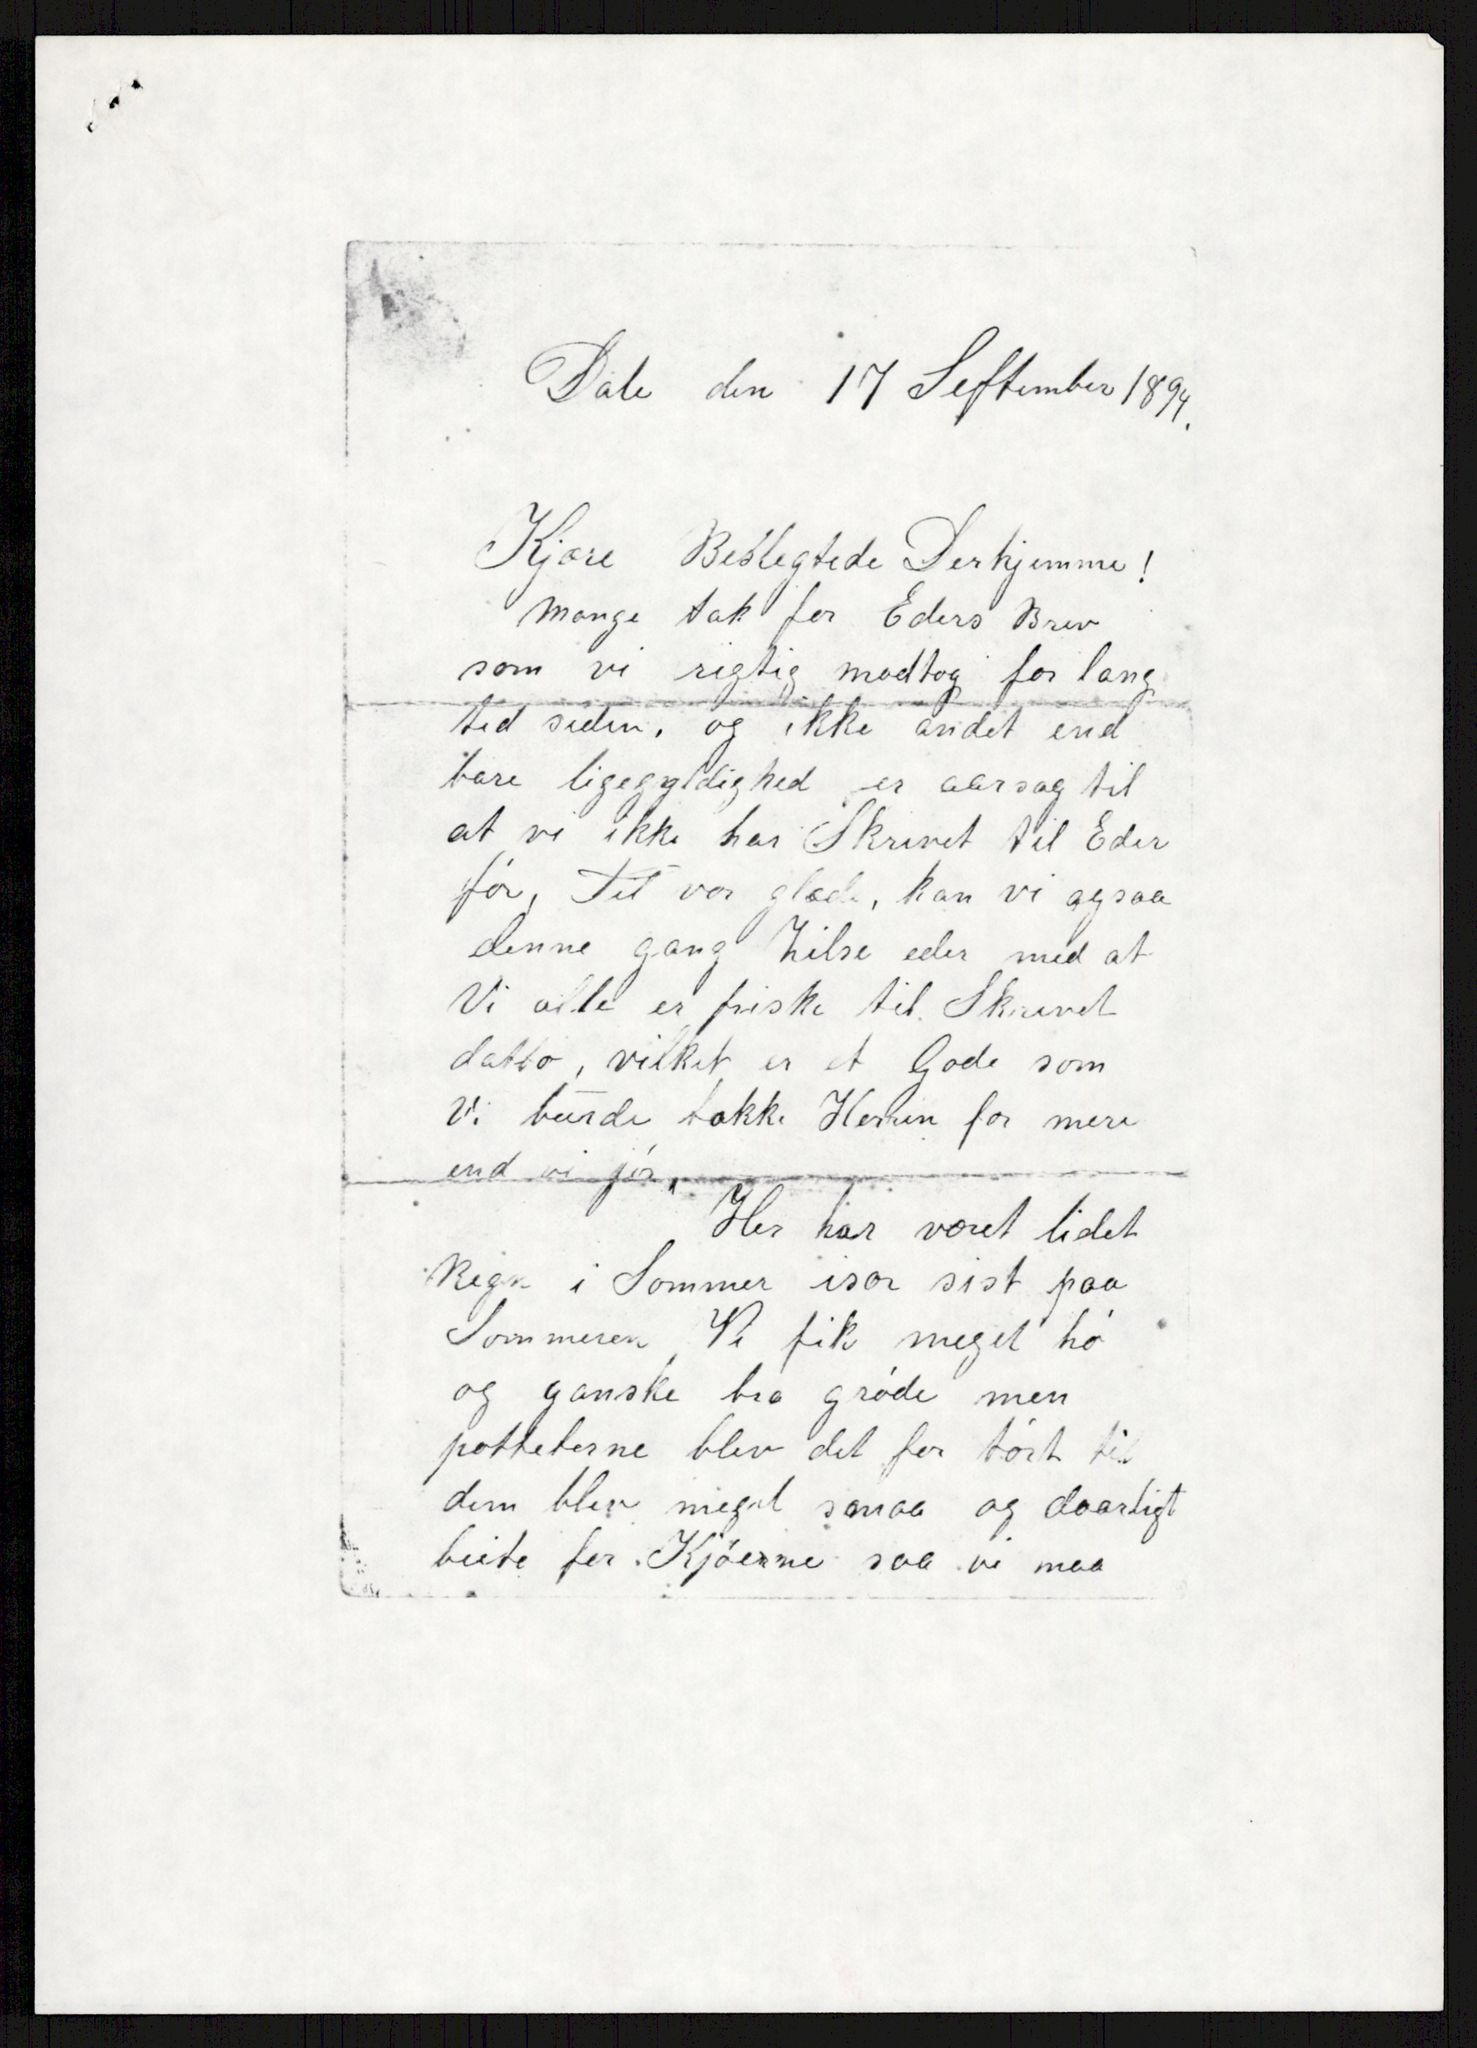 Dale den 17 September 1894.
Kjære Beslegtede Derhjemme!
Mange tak for Eders Brev
som vi rigtig modtog for lang
tid siden, og ikke andet end
bare ligegyldighed er aarsag til
at vi ikke har Skrevet til Eder
før, Til vor glæde, kan vi ogsaa
denne gang hilse eder med at
Vi alle er friske til Skrevet
datto, vilket er et Gode som
Vi burde takke Herren for mere
end vi jør,
Her har været lidet
Regn i Sommer især sist paa
Sommeren, Vi fik meget hø
og ganske bra grøde men
potteterne blev det for tørt til
dem blev meget smaa og daarligt
beite for Kjøerne saa vi maa